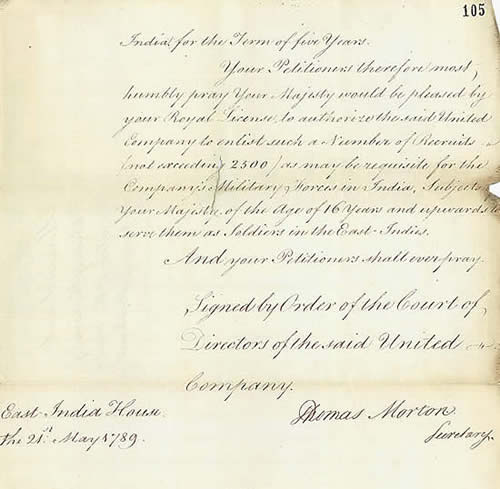 105
India, for the Term of five Years.
Your Petitioners therefore most
humbly pray Your Majesty would be pleased by
your Royal License, to authorize the said United
Company to enlist such a Number of Recruits
(not exceeding 2500) as may be requisite for the
Company's Military Forces in India, Subjects
Your Majesty, of the Age of 16 Years and upwards to
serve them as Soldiers in the East-Indies.
And your Petitioners shall ever pray.
Signed by Order of the Court of
Directors of the said United
Company.
East-India House
The 21st May 1789.
Thomas Morton
Secretary